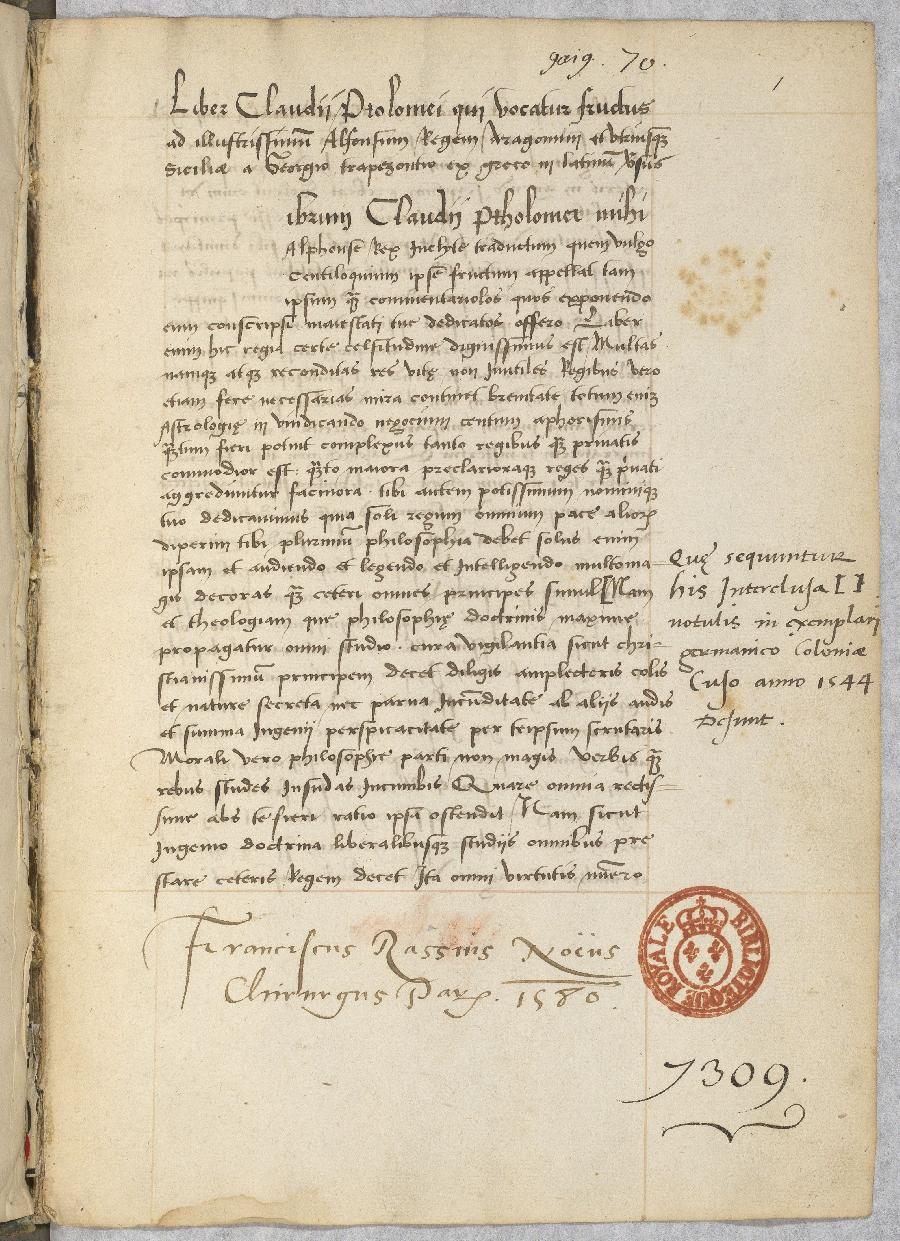 70.
1
Liber Claudii Ptolomei qui vocatur fructus
ad illustrissimũ Alfonsum Regem Aragonum et utriusqʒ
Siciliæ a Georgio trapezontio ex greco in latinũ ṽsus
ibrum Claudii Ptholomei mihi
Alphonse Rex Inclyte traductum quem vulgo
Centiloquium ipse fructum appellat tam
ipsum q̃ commentariolos quos exponendo
eum conscripsi maiestati tue dedicatos offero Liber
enim hic regia certe celsitudine dignissimus est Multas
namqʒ atqʒ reconditas res vitę non Inutiles Regibus vero
etiam fere necessarias mira continet breuitate totum enim
Astrologię in vindicando negocium centum aphorismis
q̃tum fieri potuit complexus tanto regibus q̃ priuatis
commodior est. q̃to maiora preclarioraqʒ reges q̃ p̃uati
aggrediuntur facinora. tibi autem potissimum nominiqʒ
tuo dedicauimus quia soli regum omnium pace alioꝝ
dixerim tibi plurimũ philosophia debet solus enim
ipsam et audiendo et legendo et Intelligendo multo ma-
gis decoras q̃ ceteri omnes principes simul [Nam
et theologiam que philosophię doctrinis maxime
propagatur omni studio. cura vigilantia sicut chri-
stianissimũ principem decet diligis amplecteris colis
et nature secreta nec parua Iucũditate ab aliis audis
et summa Ingenii perspicacitate per teipsum scrutaris
Morali vero philosophie parti non magis verbis q̃
rebus studes Insudas Incumbis Quare omnia rectis-
sime abs te fieri ratio ipsa ostendit Nam sicut
Ingenio doctrina liberalibusqʒ studiis omnibus pre
stare ceteris Regem decet Ita omni virtutis nũero
Quę sequuntur
his Interclusa [ ]
notulis in exemplari
germanico Coloniæ
Cuso anno 1544
Desunt.
Franciscus Rassius Noëus
Chirurgus Par. 1580.
BIBLIOTHEQUE ROYALE
7309.